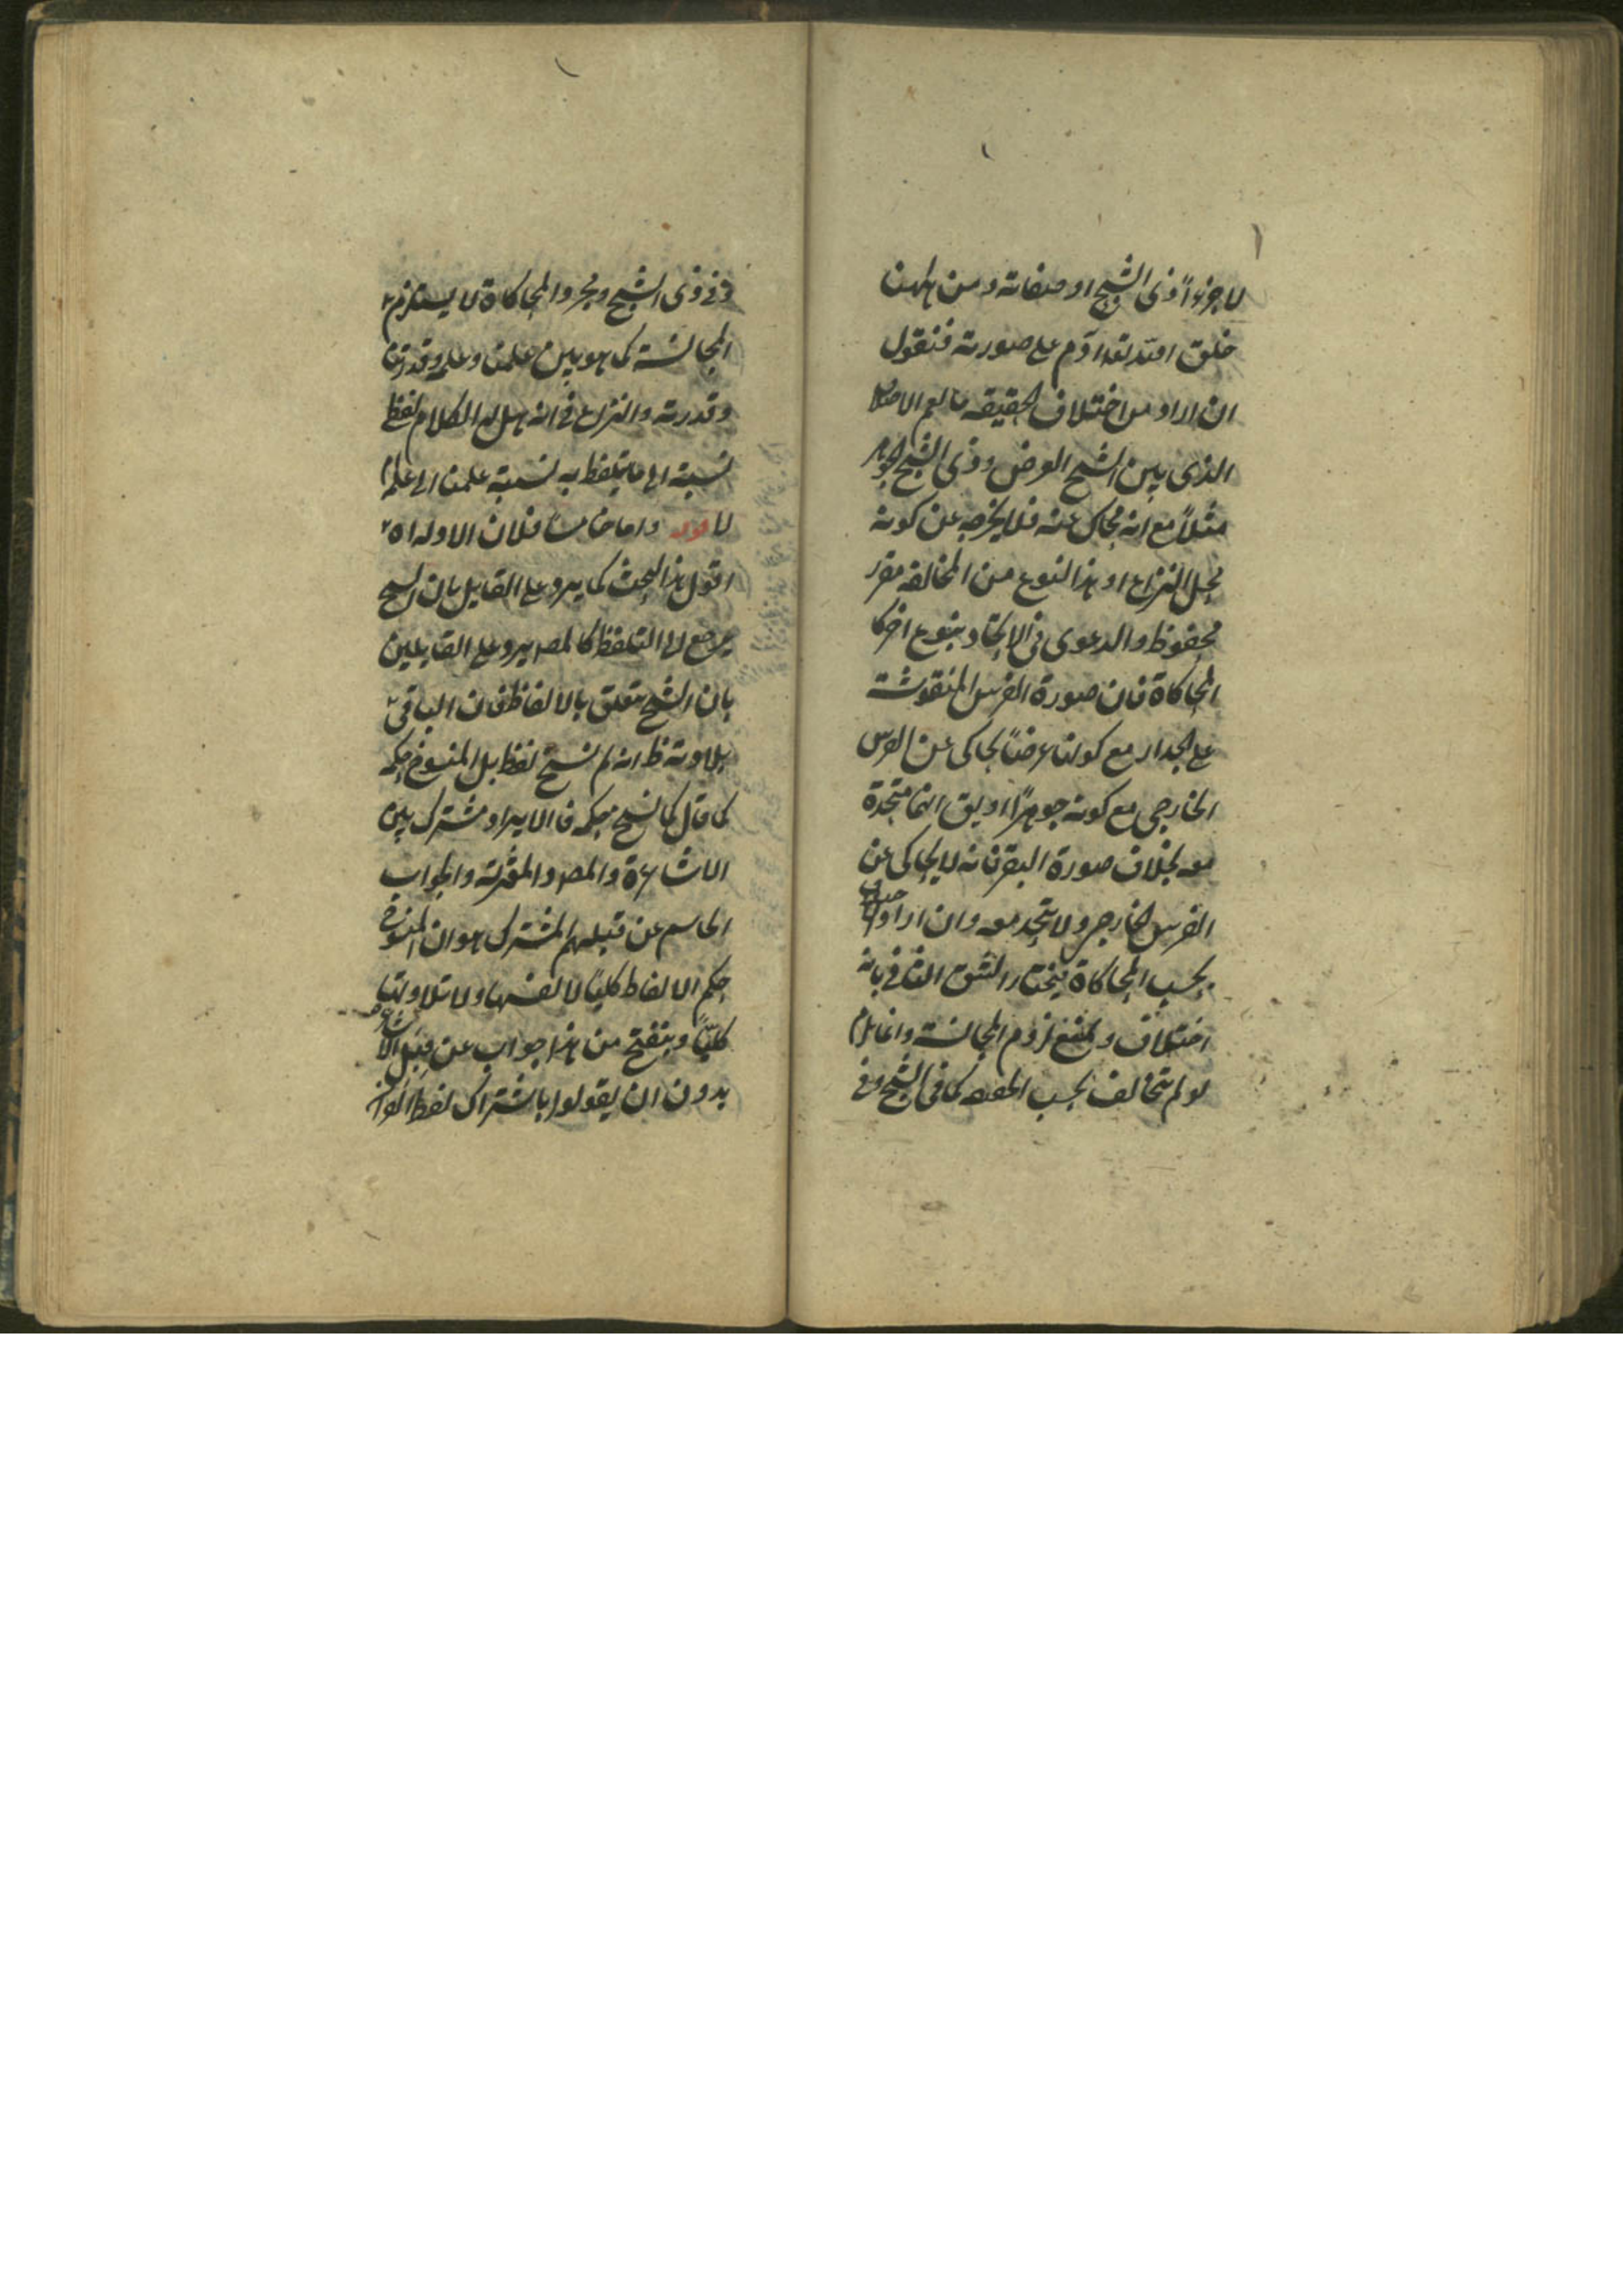 لا جزءاً وذى الشبح او صفاته ومن ههنا
خلق الله تعه ادٓم على صورته فنقول
ان اراد من اختلاف الحقيقه ما يعم الاختلا
الذى بين الشبح العرض وذى الشبح الجوهر
مثلاً مع انه محاك عنه فلا يخرجه عن كونه
محل النزاع او هذا النوع من المخالفه مقرر
محفوظ والدعوى فى الاتحاد بنوع اخر كا
المحاكاة فان صورة الفرس المنقوشة
على الجدار مع كونها عرضاً يحاكى عن الفرس
الخارجى مع كونه جوهراً او يق انها متحدة
معه بخلاف صورة البقر فانه لا يحاكى عن
الفرس الخارجى ولا يتحد معه وان اراد
بحسب المحاكاة يختار الشق الثانى بانه
اختلاف ويمنع لزوم المجانسة وانما يلزم
لو لم تتخالف بحسب الحقيقه كما فى الشبح وفى
وفى ذى الشبح ومجرد المحاكاة لا يستلزم
المجانسة كما هو بين علمنا وعلمه وقدرتنا
وقدرته والنزاع فى انه هل له الكلام لفظ
نسبته الى ما يتلفظ به نسبة علمنا الى علمه
لا قوله واما خامساً فلان الادلة اه
اقول هذا البحث كما يرد على القايل بان النسخ
يرجع الى التلفظ كالمصه يرد على القايلين
بان النسخ متعلق بالالفاظ فان الباقى
تلاوته ظ انه لم ينسخ لفظ بل المنسوخ حكمه
كما قال كما نسخ حكمه فالايراد مشترك بين
الاشاعرة والمصه والمعتزلة والجواب
الحاسم عن قبلهم المشترك هو ان المنسوخ
حكم الالفاظ كلياً لا نفسها ولا تلاوتها
كليّاً وينفتح من هذا جواب عن قِبَل الاشاعرة
بدون ان يقولوا باشتراك لفظ القران